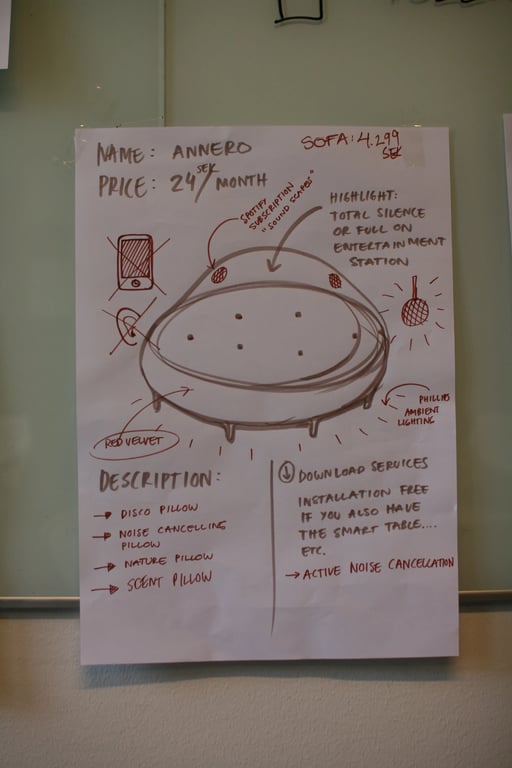 NAME: ANNERO
PRICE: 24 SEK/MONTH
SOFA: 4.299
SEK
SPOTIFY
SUBSCRIPTION
"SOUND SCAPES"
HIGHLIGHT:
TOTAL SILENCE
OR FULL ON
ENTERTAINMENT
STATION
PHILLIPS
AMBIENT
LIGHTING
RED VELVET
DESCRIPTION:
→ DISCO PILLOW
→ NOISE CANCELLING
PILLOW
→ NATURE PILLOW
→ SCENT PILLOW
DOWNLOAD SERVICES
INSTALLATION FREE
IF YOU ALSO HAVE
THE SMART TABLE....
ETC.
→ ACTIVE NOISE CANCELLATION